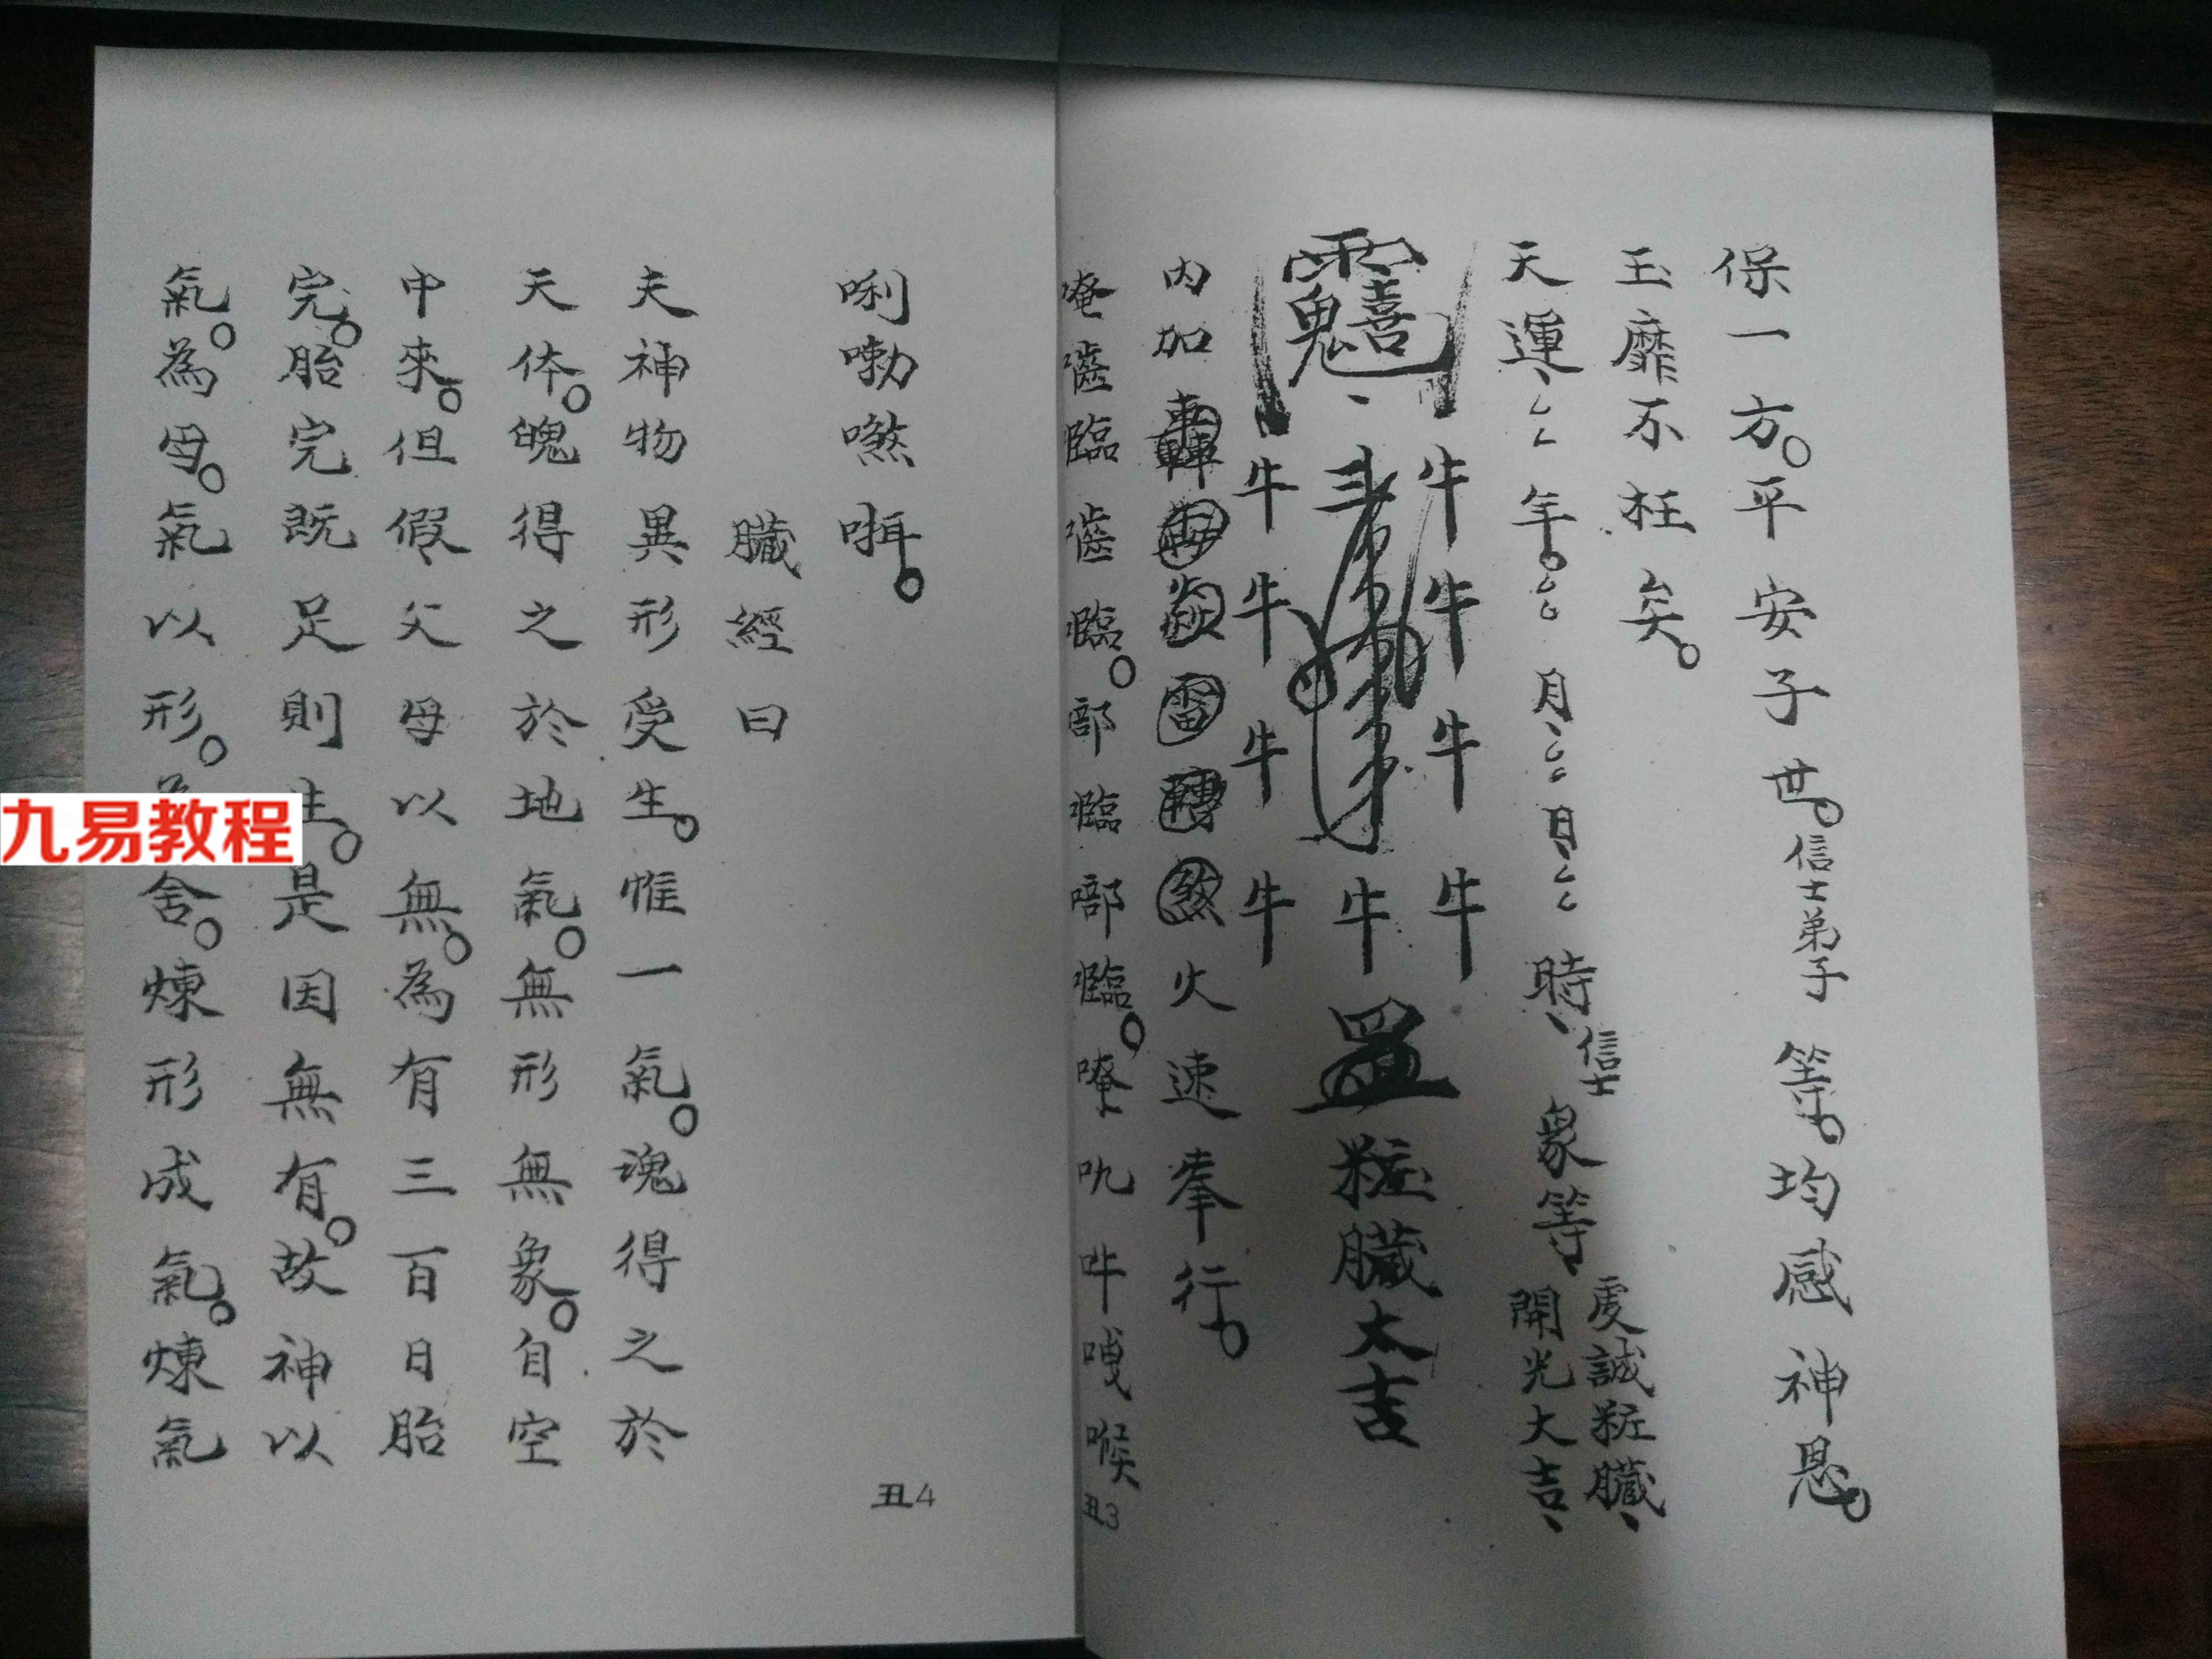 保一方。平安子世。信士弟子等。均感神恩。
玉靡不枉矣。
天運、年。月、日、時、信士衆等虔誠粧臟、開光大吉、
牛牛牛牛
牛粧臟大吉
牛牛牛牛
内加轟雷轉煞火速奉行。
唵𡃤臨𡃤臨。部臨部臨。唵吽㗙喉
丑3
唎嘞嘫㖇。
臟經曰
夫神物異形受生。惟一氣。魂得之於
天体。魄得之於地氣。無形無象。自空
中來。但假父母以無。為有三百日胎
完。胎完既足則生。是因無有。故神以
氣。為母。氣以形。舍。煉形成氣。煉氣
丑4
九易教程